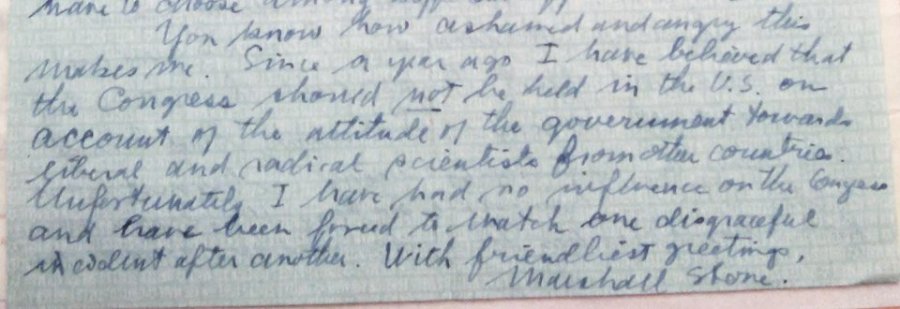 have to choose among
You know how ashamed and angry this
makes me. Since a year ago I have believed that
the Congress should not be held in the U.S. on
account of the attitude of the government towards
liberal and radical scientists from other countries.
Unfortunately I have had no influence on the Congress
and have been forced to watch one disgraceful
incident after another. With friendliest greetings,
Marshall Stone.